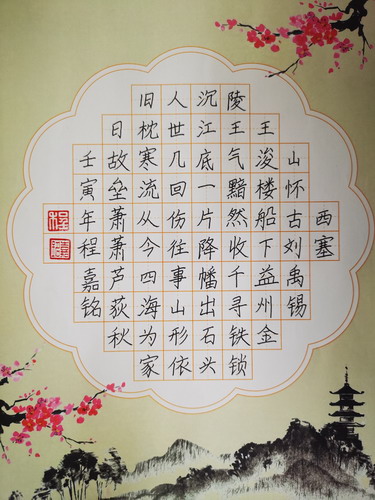 西塞
山怀古刘禹锡
王浚楼船下益州金
陵王气黯然收千寻铁锁
沉江底一片降幡出石头
人世几回伤往事山形依
旧枕寒流从今四海为家
日故垒萧萧芦荻秋
壬寅年程嘉铭
程